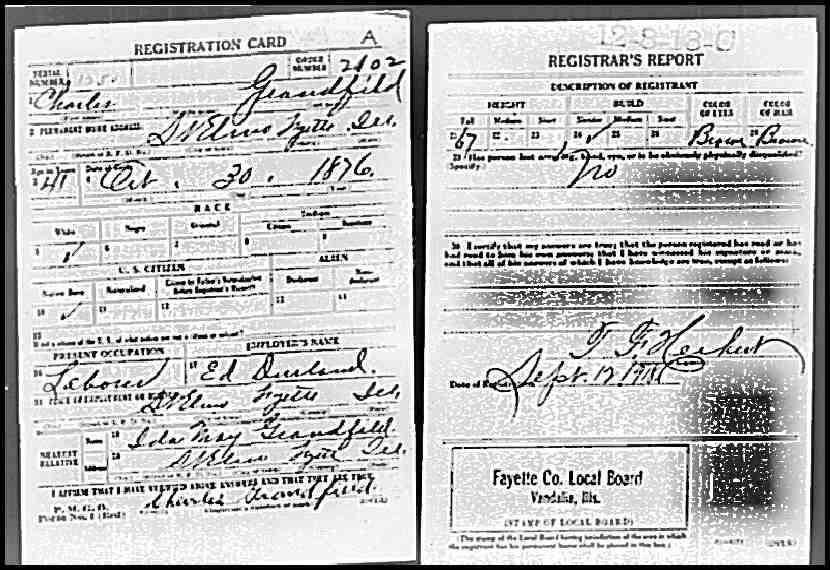 REGISTRATION CARD A
SERIAL NUMBER ORDER NUMBER 2102
1 Charles Grandfield
2 PERMANENT HOME ADDRESS St Elmo Fytte Ill.
Age in Years Date of
41 Oct. 30. 1876.
RACE
White Negro Oriental Indian
Citizen
5 ✓ 6 7 8 9
U. S. CITIZEN ALIEN
Native Born Naturalized Citizen by Father's Naturalization Before Registrant's Majority Declarant Non-declarant
10 ✓ 11 12 13 14
15
If not a citizen of the U. S., of what nation are you a citizen or subject?
PRESENT OCCUPATION EMPLOYER'S NAME
16 Laborer 17 Ed
18 PLACE OF EMPLOYMENT OR
St Elmo Fytte Ill.
NEAREST RELATIVE Name 19 Ida May Grandfield.
Address 20 St Elmo Fytte Ill.
I AFFIRM THAT I HAVE VERIFIED ABOVE ANSWERS AND THAT THEY ARE TRUE
P. M. G. O.
Form No. 1 (Red) Charles Grandfield.
(OVER)
12-8-13-C
REGISTRAR'S REPORT
DESCRIPTION OF REGISTRANT
HEIGHT BUILD COLOR OF EYES COLOR OF HAIR
Tall Medium Short Slender Medium Stout
21 67 22 23 24 ✓ 25 26 27 Brown 28 Brown
29 Has person lost arm, leg, hand, eye, or is he obviously physically disqualified?
(Specify.) No
30 I certify that my answers are true; that the person registered has read or has
had read to him his own answers; that I have witnessed his signature or mark,
and that all of his answers of which I have knowledge are true, except as follows:
Date of Registration Sept. 12 1918
Fayette Co. Local Board
Vandalia, Ills.
(STAMP OF LOCAL BOARD)
(The stamp of the Local Board having jurisdiction of the area in which
the registrant has his permanent home shall be placed in this box.)
(OVER)